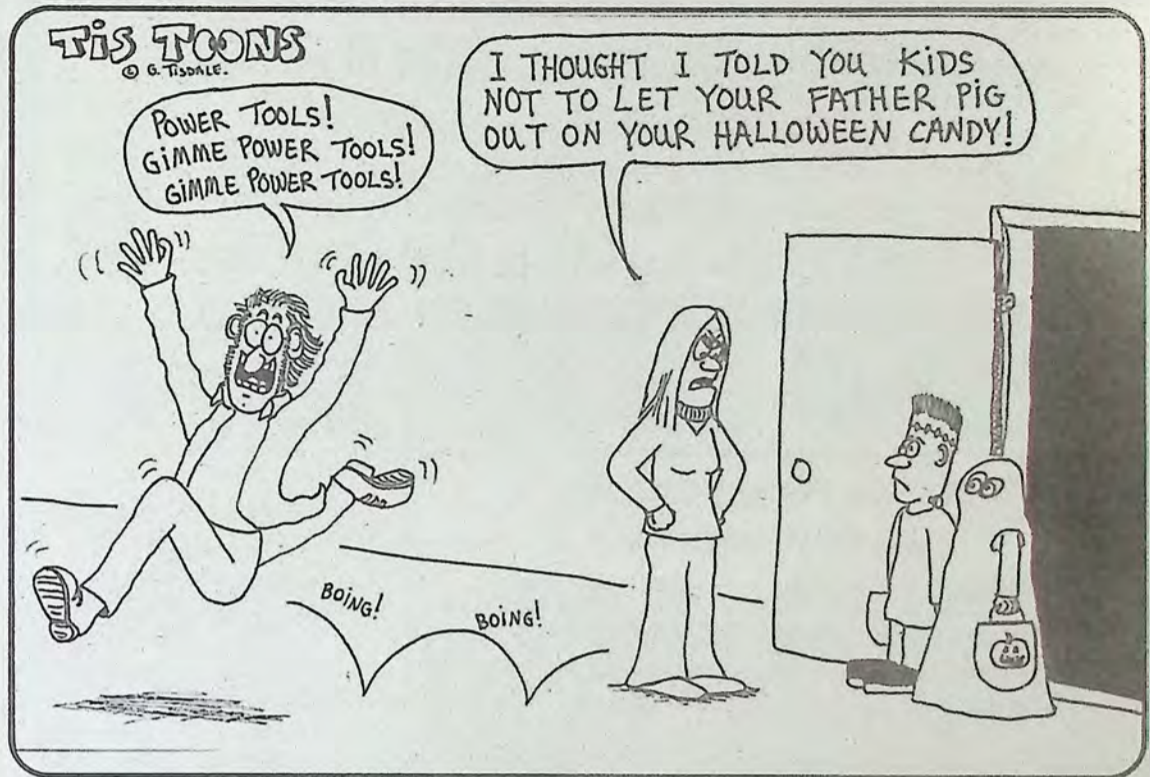 TIS TOONS
© G. TISDALE.
POWER TOOLS!
GIMME POWER TOOLS!
GIMME POWER TOOLS!
I THOUGHT I TOLD YOU KIDS
NOT TO LET YOUR FATHER PIG
OUT ON YOUR HALLOWEEN CANDY!
BOING!
BOING!